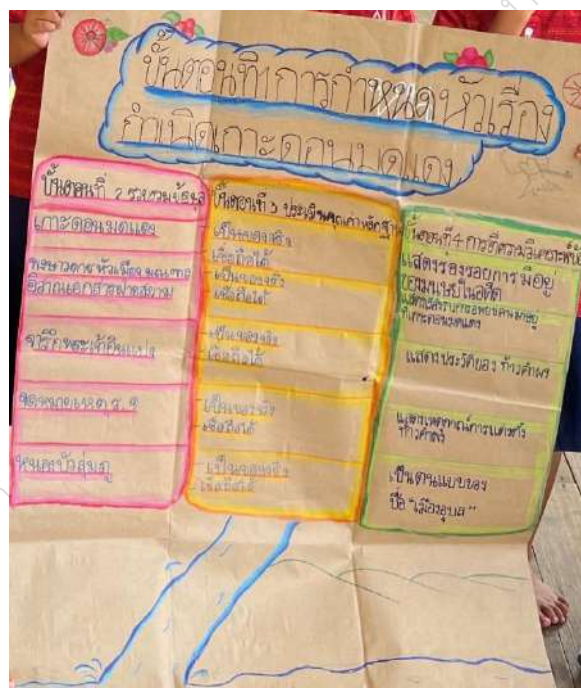 ขั้นตอนที่1การกำหนดหัวเรื่อง
กำเนิดเกาะดอนมดแดง
ขั้นตอนที่ 2 รวบรวมข้อมูล
เกาะดอนมดแดง
พงษาวดารหัวเมืองมณฑล
อีสานเอกสารฝ่ายสยาม
จารึกพระเจ้าอินแปง
จดหมายเหตุ ร. 1
หนองบัวลุ่มภู
ขั้นตอนที่ 3 ประเมินคุณค่าหลักฐาน
เป็นของจริง
เชื่อถือได้
เป็นของจริง
เชื่อถือได้
เป็นของจริง
เชื่อถือได้
เป็นของจริง
เชื่อถือได้
เป็นของจริง
เชื่อถือได้
ขั้นตอนที่4 การตีความวิเคราะห์
แสดงร่องรอยการมีอยู่
ของมนุษย์ในอดีต
ที่เกาะดอนมดแดง
แสดงประวัติของ ท้าวคำผง
แสดงเหตุการณ์การแต่งตั้ง
ท้าวคำผง
เป็นต้นแบบของ
ชื่อ "เมืองอุบล"